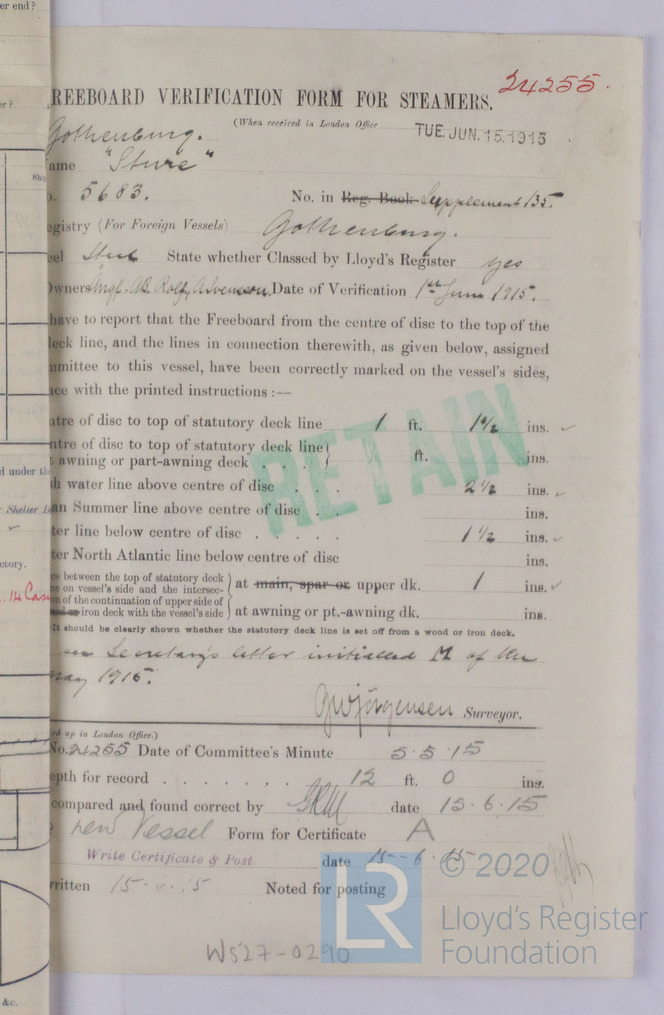 24255.
REEBOARD VERIFICATION FORM FOR STEAMERS.
(When received in London Office
TUE. JUN. 15. 1915
Gothenburg.
ame "Sture"
o. 5683. No. in Reg. Book Supplement 135
egistry (For Foreign Vessels) Gothenburg.
eel Steel State whether Classed by Lloyd's Register yes
Owners Ångf. AB. Rolf, A. Svensson, Date of Verification 1st June 1915.
have to report that the Freeboard from the centre of disc to the top of the
deck line, and the lines in connection therewith, as given below, assigned
mmittee to this vessel, have been correctly marked on the vessel's sides,
nce with the printed instructions :—
ntre of disc to top of statutory deck line 1 ft. 1½ ins.
ntre of disc to top of statutory deck line
t awning or part-awning deck . . . ft. ins.
RETAIN
h water line above centre of disc . . . 2½ ins.
an Summer line above centre of disc . . ins.
ter line below centre of disc . . . . . 1½ ins.
ter North Atlantic line below centre of disc ins.
ce between the top of statutory deck
e on vessel's side and the intersec-
on of the continuation of upper side of
iron deck with the vessel's side
at main, spar or upper dk. 1 ins.
at awning or pt.-awning dk. ins.
It should be clearly shown whether the statutory deck line is set off from a wood or iron deck.
see Secretary's letter initialled M of the
may 1915.
GW Jörgensen Surveyor.
ed up in London Office.)
No. 24255 Date of Committee's Minute 5.5.15
epth for record . . . . . . . 12 ft. 0 ins.
compared and found correct by date 15.6.15
new Vessel Form for Certificate A
Write Certificate & Post. date 15-6-15
written 15.6.15 Noted for posting
WS27-0290
er end?
er?
Shi
d under th
Shelter
ectory.
&c.
LR
© 2020
Lloyd's Register
Foundation